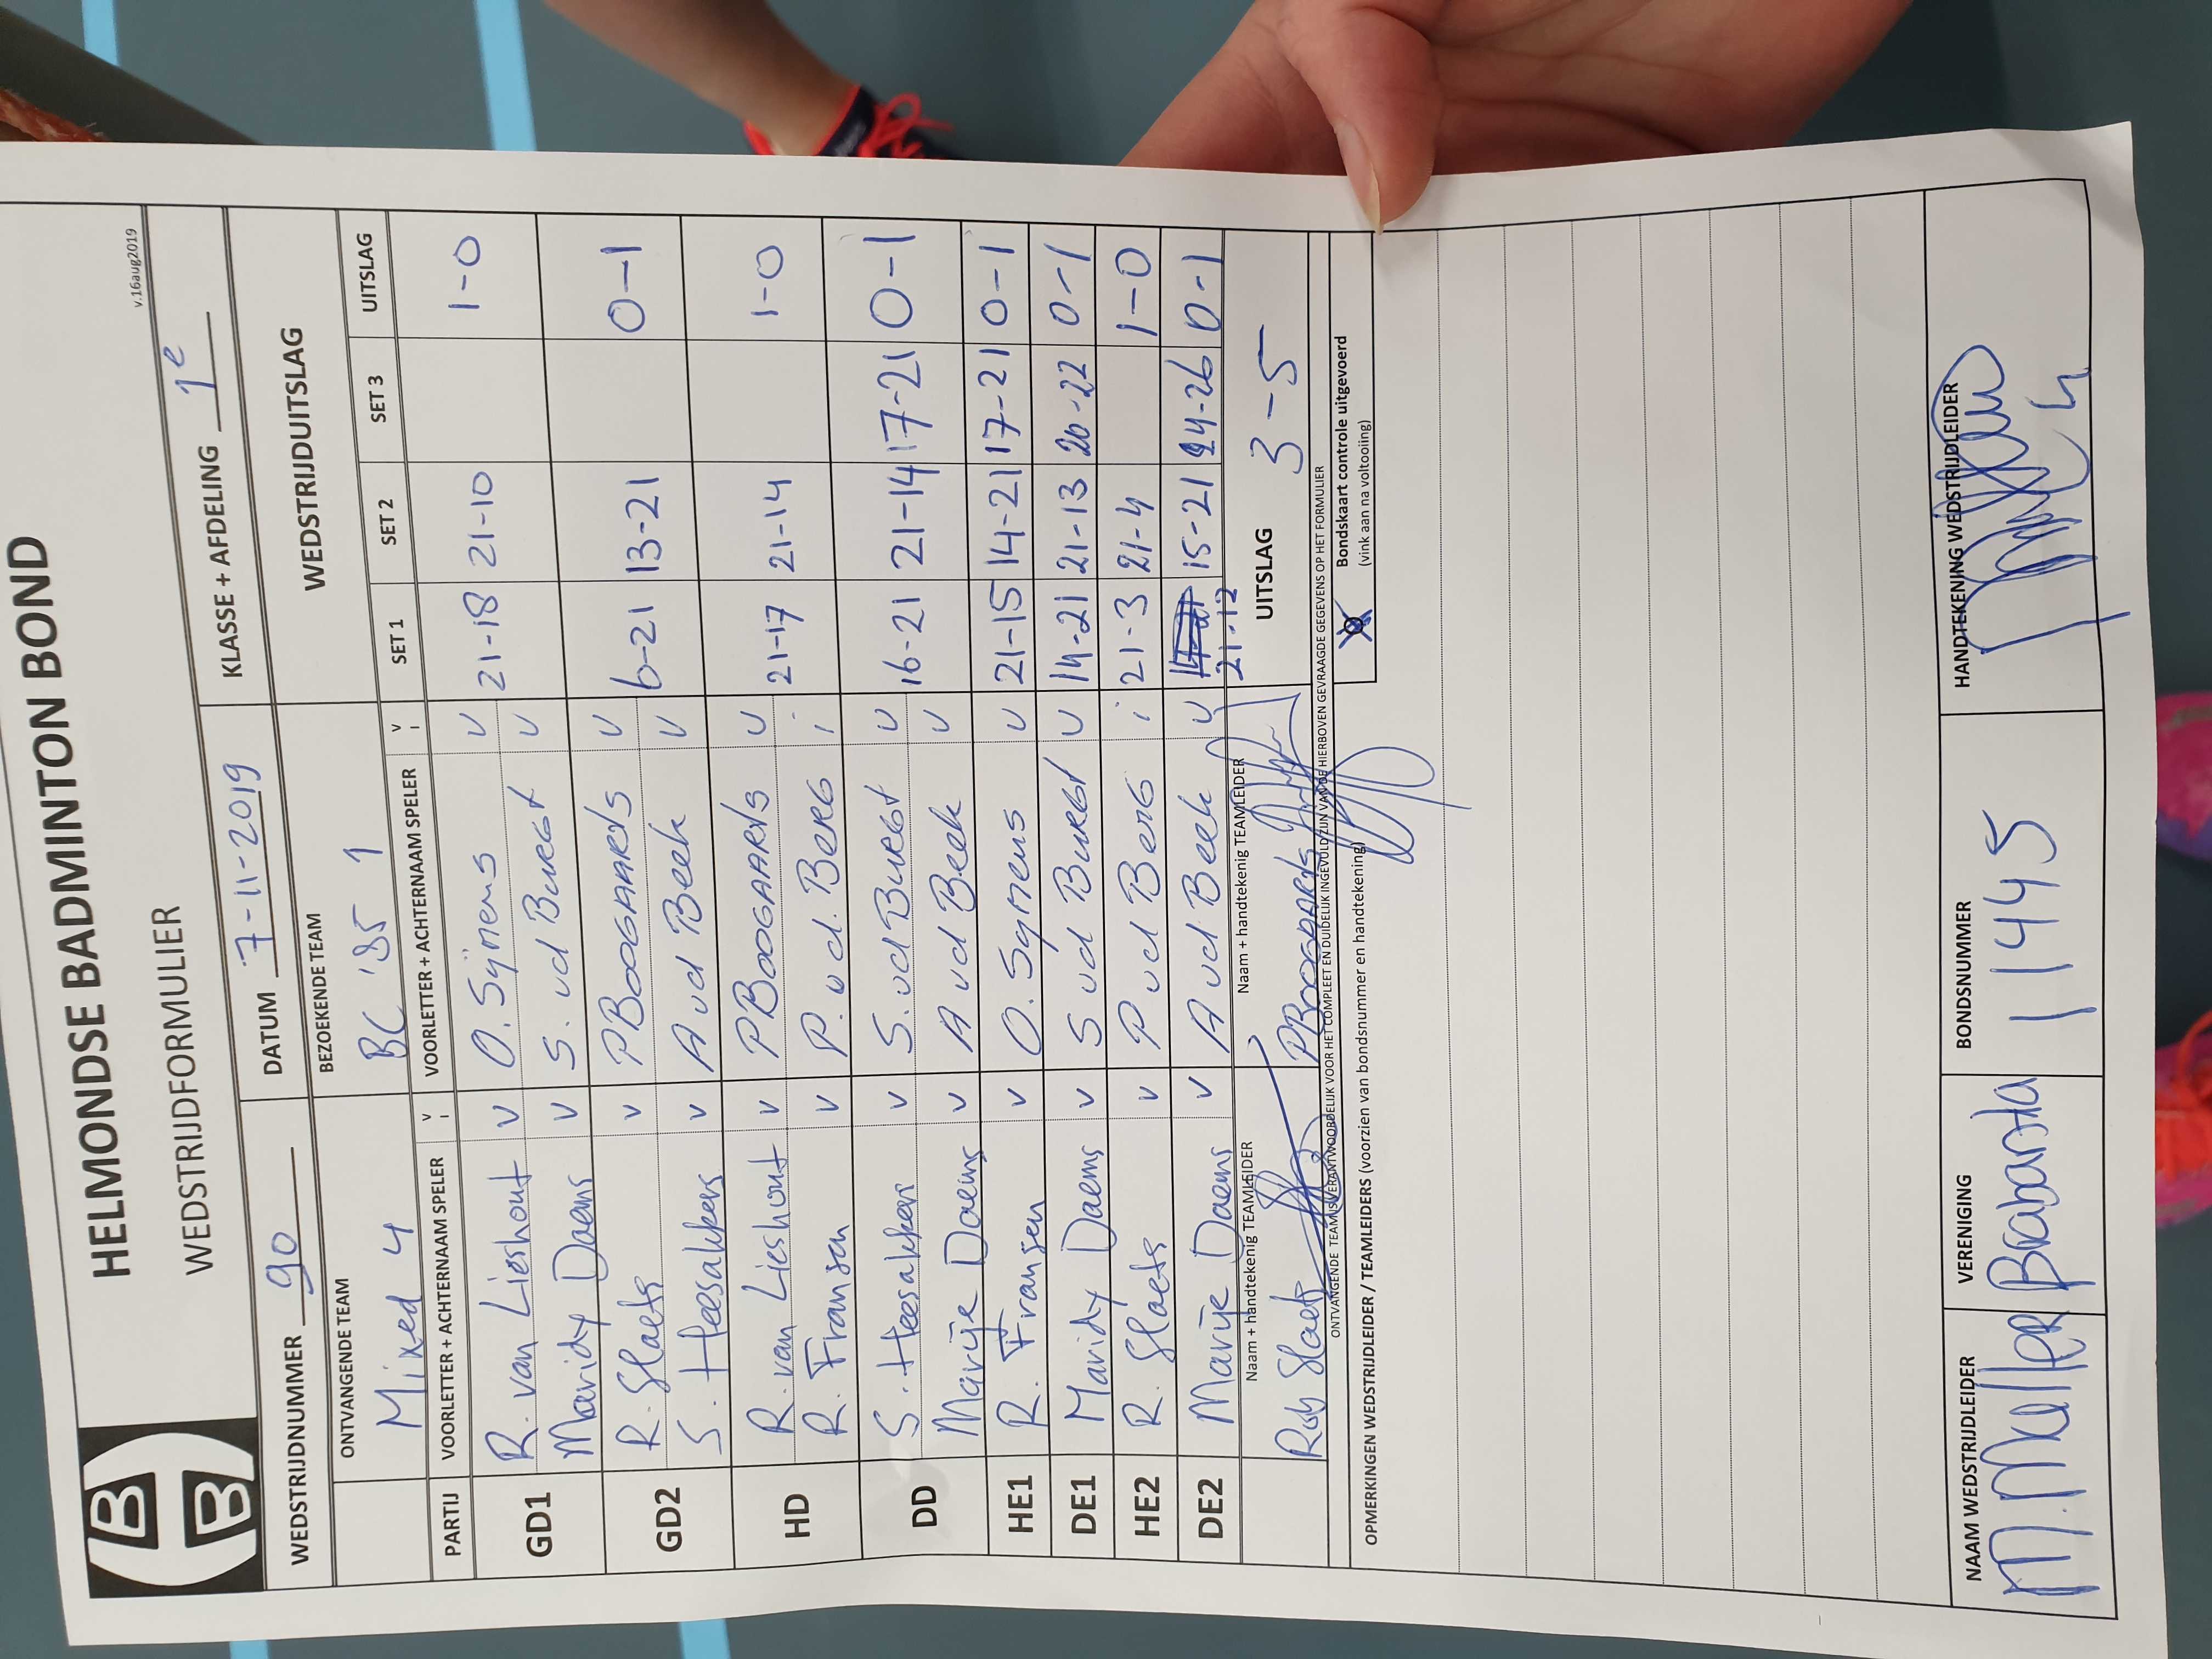 HELMONDSE BADMINTON BOND
WEDSTRIJDFORMULIER
v.16aug2019
WEDSTRIJDNUMMER 90 DATUM 7-11-2019 KLASSE + AFDELING 1e
ONTVANGENDE TEAM BEZOEKENDE TEAM WEDSTRIJDUITSLAG
Mixed 4 BC '85 1
PARTIJ VOORLETTER + ACHTERNAAM SPELER V I VOORLETTER + ACHTERNAAM SPELER V I SET 1 SET 2 SET 3 UITSLAG
GD1 R. van Lieshout v O. Sijmens v 21-18 21-10 1-0
Maridy Daems v S. vd Burgt v
GD2 R. Slaets v P Boogaards v 6-21 13-21 0-1
S. Heesakkers v A vd Beek v
HD R. van Lieshout v P Boogaards v 21-17 21-14 1-0
R. Fransen v P. v d. Berg i
DD S. Heesakkers v S. vd Burgt v 16-21 21-14 17-21 0-1
Marije Daems v A vd Beek v
HE1 R. Fransen v O. Sijmens v 21-15 14-21 17-21 0-1
DE1 Maridy Daems v S vd Burgt v 14-21 21-13 20-22 0-1
HE2 R. Slaets v P vd Berg i 21-3 21-4 1-0
DE2 Marije Daems v A vd Beek v 21-12 15-21 24-26 0-1
Naam + handtekenig TEAMLEIDER Naam + handtekenig TEAMLEIDER UITSLAG 3-5
Roy Slaets P Boogaards
ONTVANGENDE TEAM IS VERANTWOORDELIJK VOOR HET COMPLEET EN DUIDELIJK INGEVULD ZIJN VAN DE HIERBOVEN GEVRAAGDE GEGEVENS OP HET FORMULIER
OPMERKINGEN WEDSTRIJDLEIDER / TEAMLEIDERS (voorzien van bondsnummer en handtekening)
Bondskaart controle uitgevoerd
(vink aan na voltooiing)
NAAM WEDSTRIJDLEIDER VERENIGING BONDSNUMMER HANDTEKENING WEDSTRIJDLEIDER
M. Muller Brabantia 11445